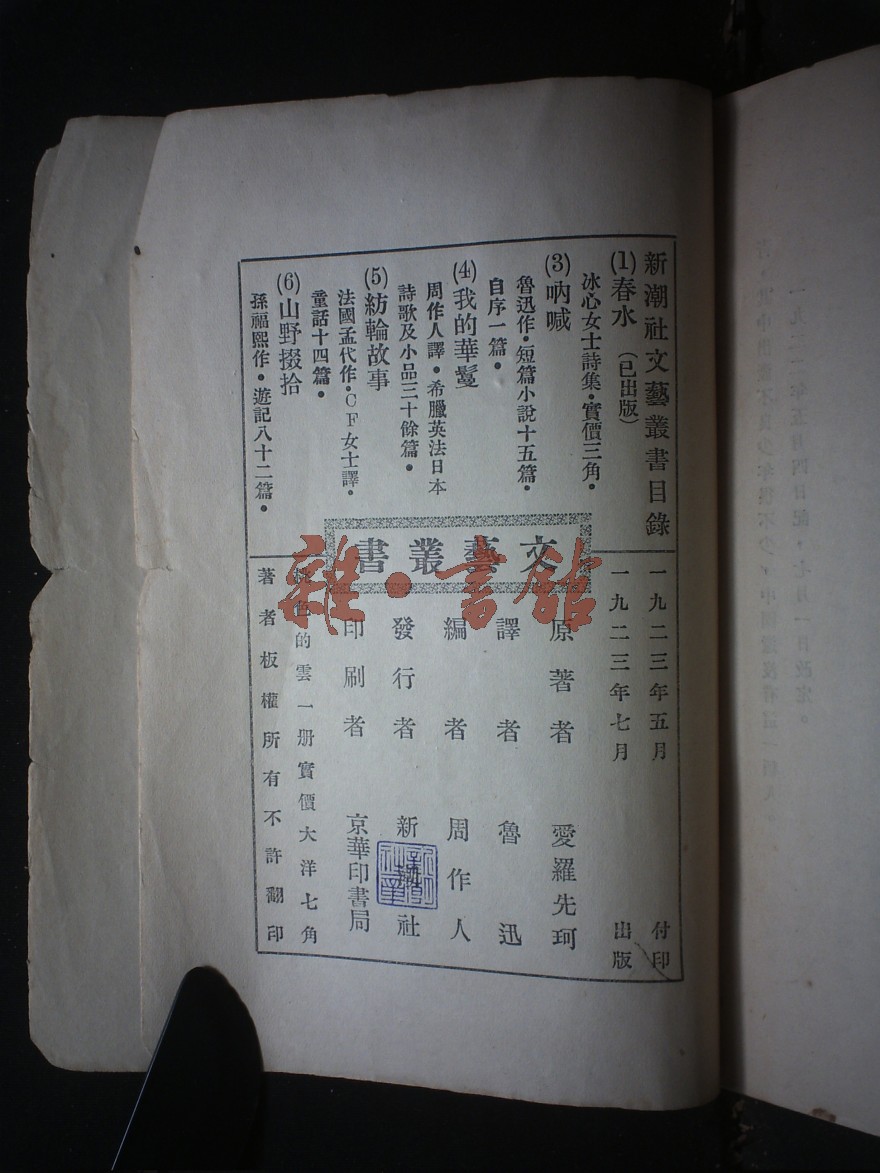 新潮社文藝叢書目錄
(1)春水（已出版）
冰心女士詩集・實價三角・
(3)吶喊
魯迅作・短篇小說十五篇・
自序一篇・
(4)我的華鬘
周作人譯・希臘英法日本
詩歌及小品三十餘篇・
(5)紡輪故事
法國孟代作・CF女士譯・
童話十四篇・
(6)山野掇拾
孫福熙作・遊記八十二篇・
一九二三年五月 付印
一九二三年七月 出版
文藝叢書
原著者 愛羅先珂
譯者 魯迅
編者 周作人
發行者 新潮社
印刷者 京華印書局
色的雲一册實價大洋七角
著者板權所有不許翻印
雜・書館